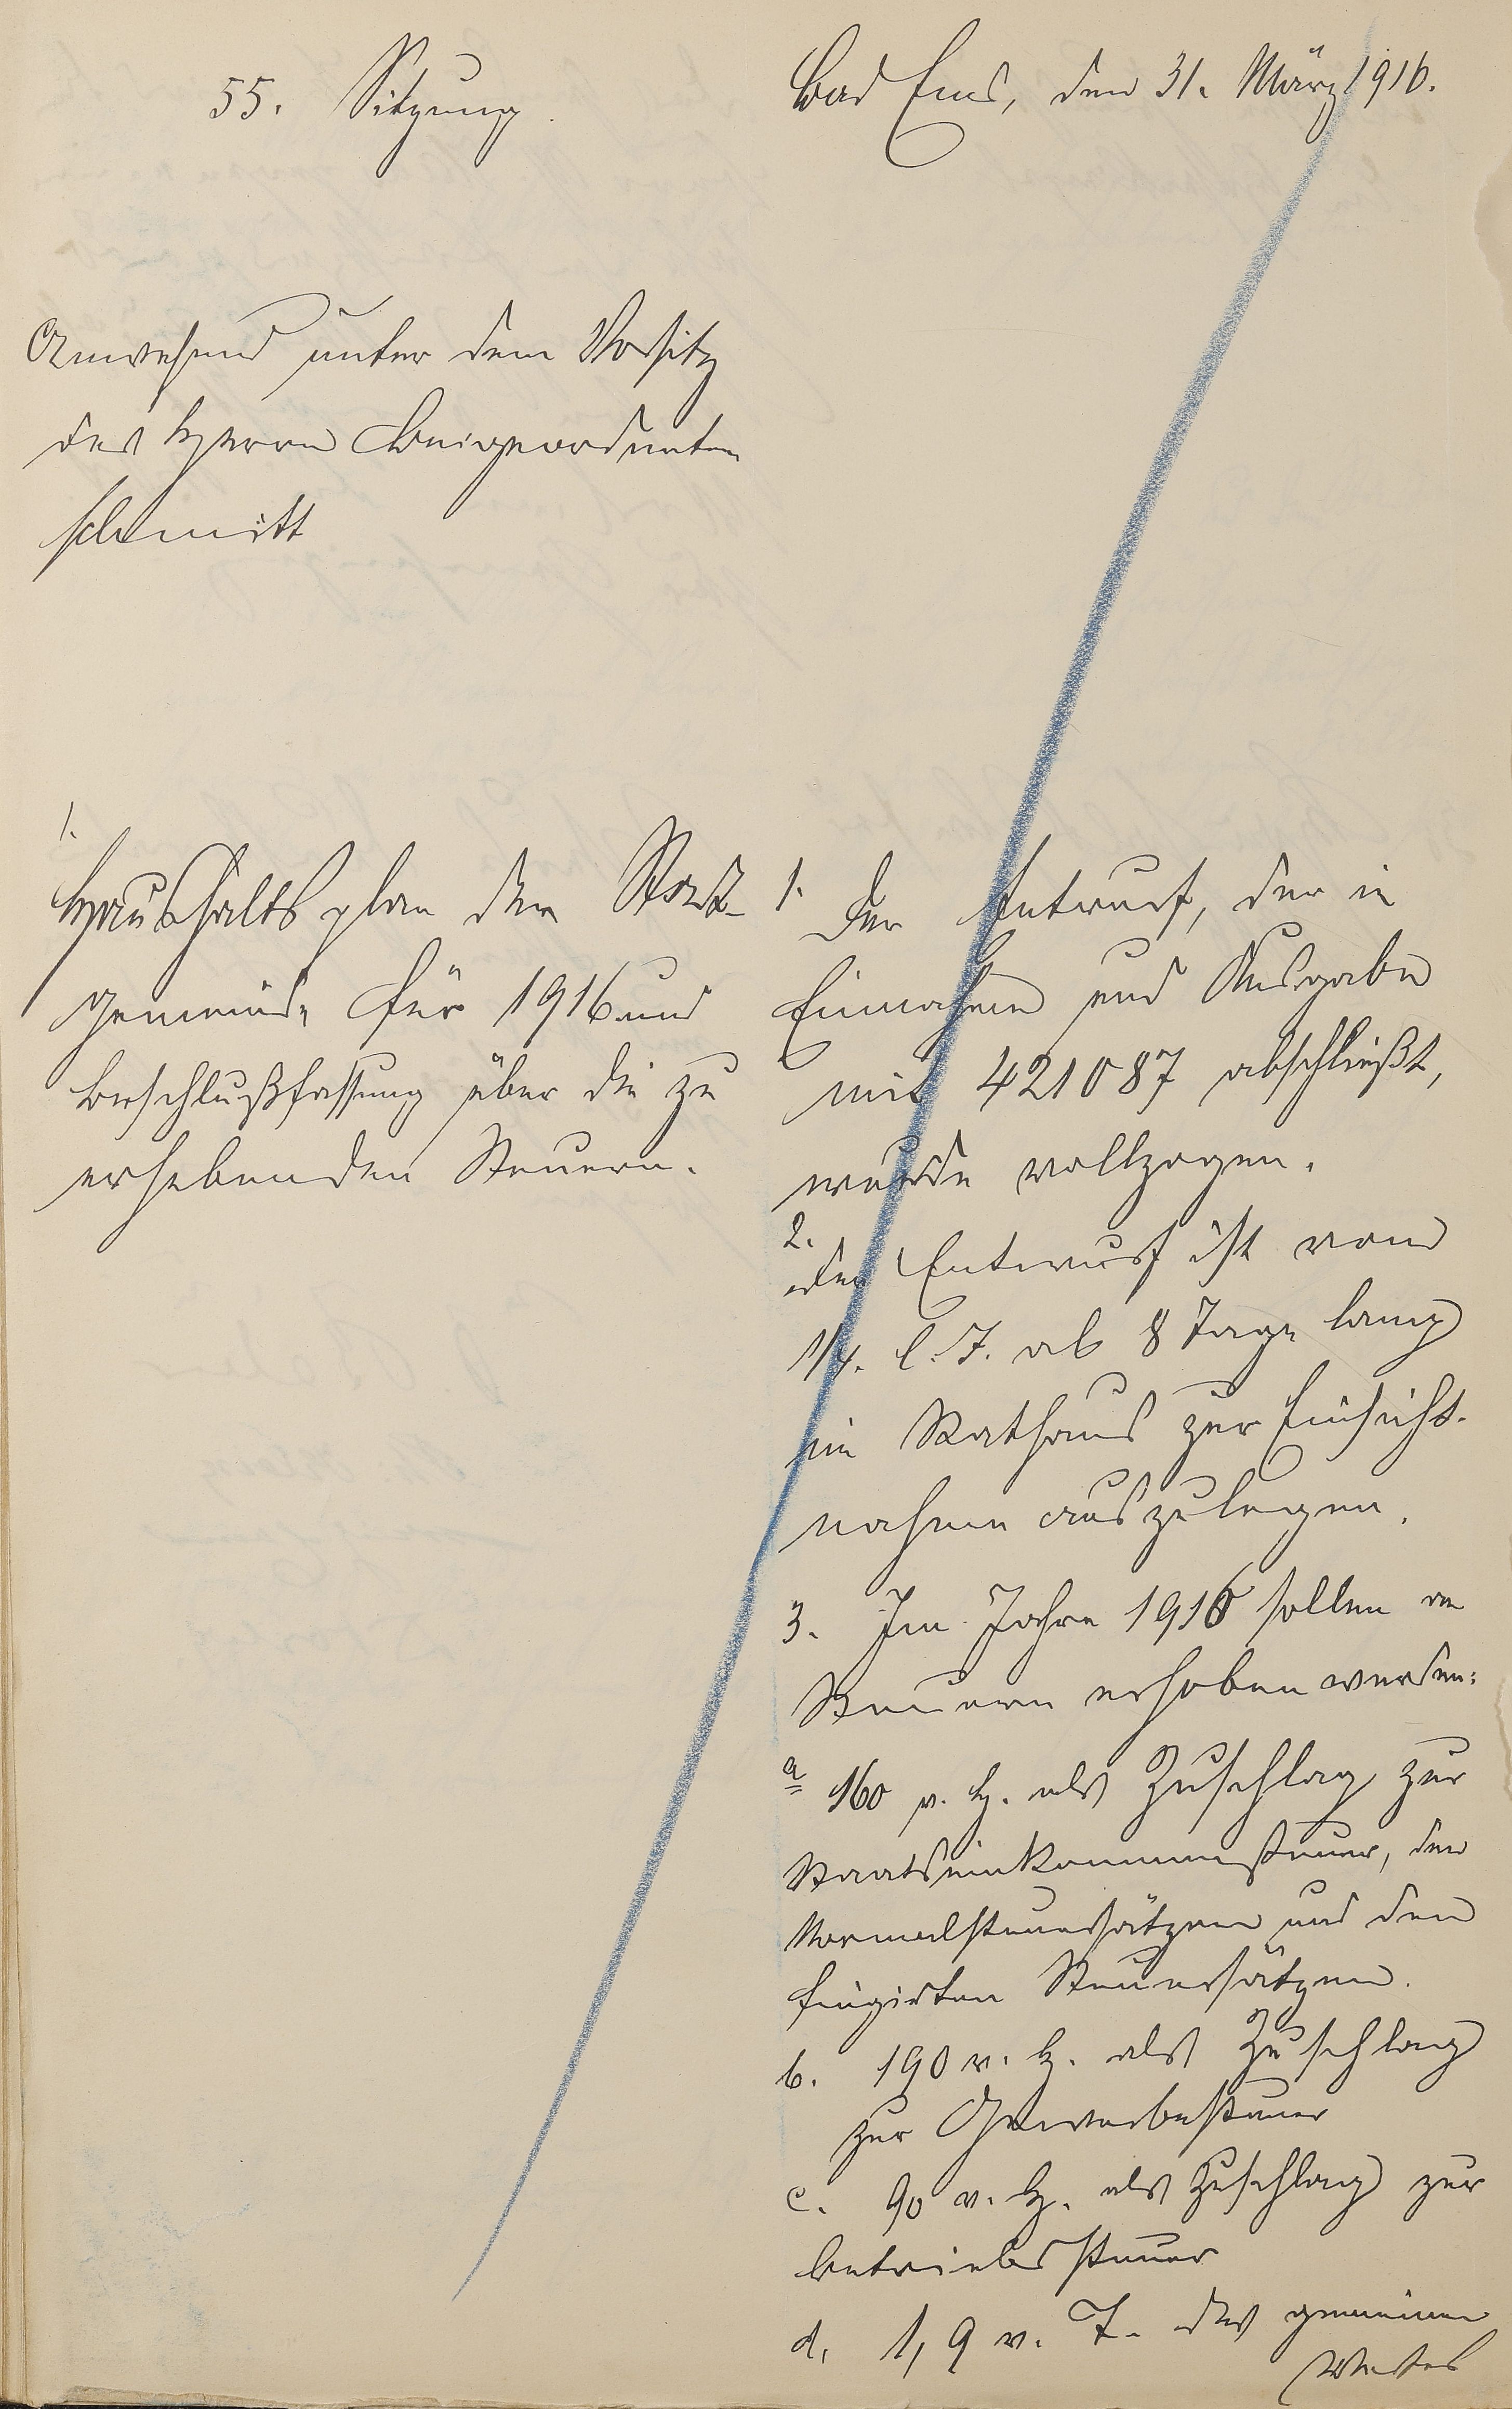 55. Sitzung.
Bad Ems, den 31. März 1916.
Anwesend unter dem Vorsitz
des Herrn Beigeordneten
Schmitt
1.
Haushaltsplan der Stadt-
gemeinde für 1916 und
Beschlußfassung über die zu
erhebenden Steuern.
1. Der Entwurf, der in
Einnahme und Ausgabe
mit 421087 abschließt,
wurde vollzogen.
2.
der Entwurf ist vom
1/4. l. J. ab 8 Tage lang
im Rathaus zur Einsicht-
nahme auszulegen.
3. Im Jahre 1916 sollen an
Steuern erhoben werden:
a 160 v. H. als Zuschlag zur
Staatseinkommensteuer, den
Normalsteuersätzen und den
fingirten Steuersätzen.
b. 190 v. H. als Zuschlag
zur Gewerbesteuer
c. 90 v. H. als Zuschlag zur
Betriebssteuer
d. 1,9 v. T. des gemeinen
Wertes